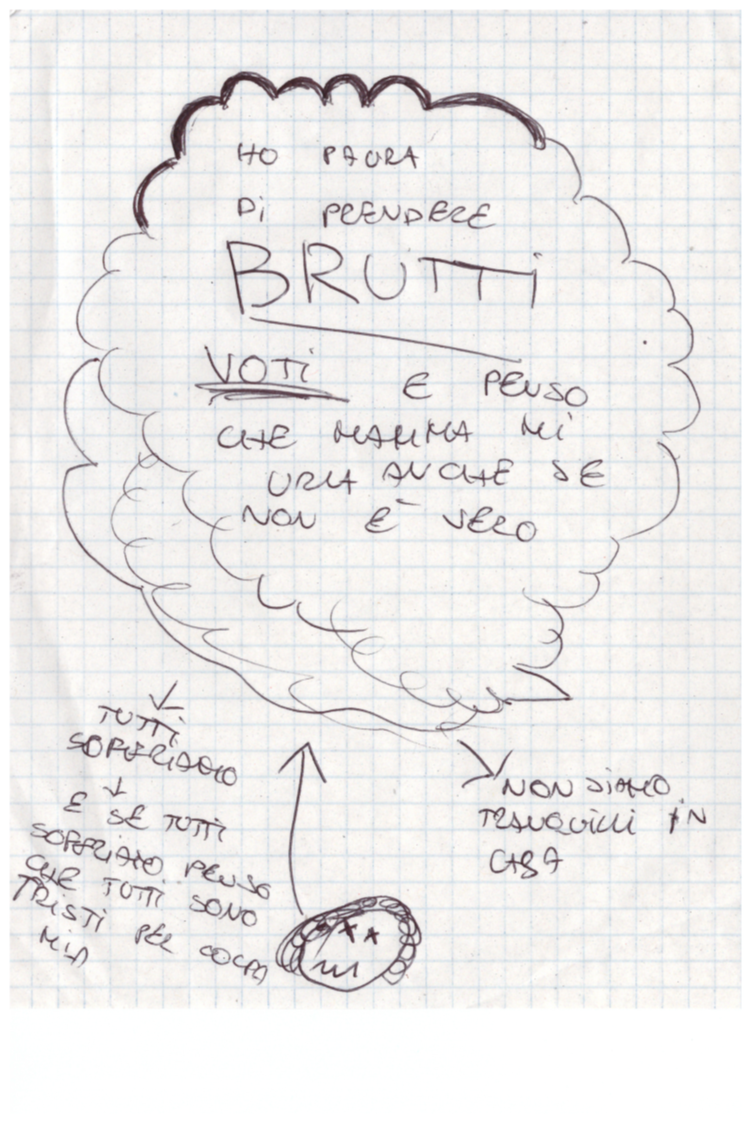 HO PAURA
DI PRENDERE
BRUTTI
VOTI E PENSO
CHE MAMMA MI
URLA ANCHE SE
NON È VERO
TUTTI
SOFFRIAMO
E SE TUTTI
SOFFRIAMO PENSO
CHE TUTTI SONO
TRISTI PER COLPA
MIA
NON SIAMO
TRANQUILLI IN
CASA